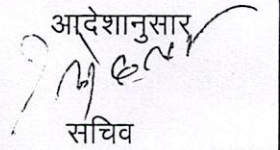 आदेशानुसार
सचिव